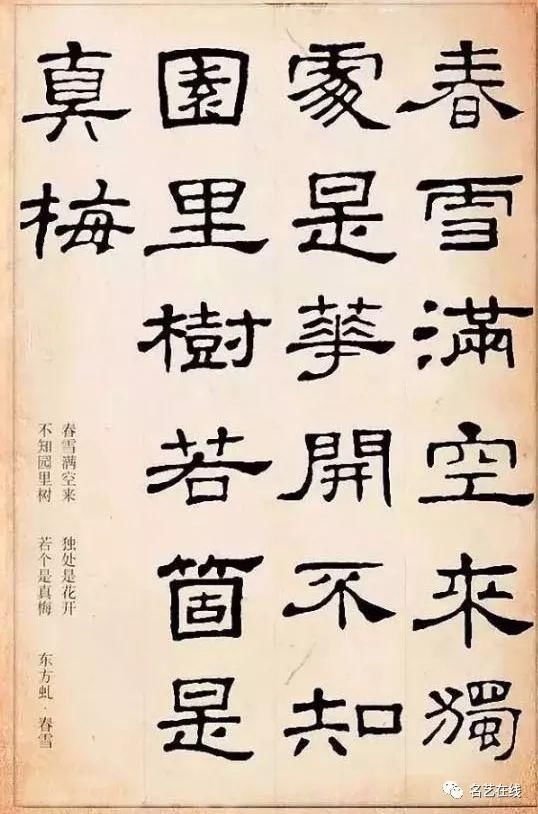 春雪滿空來獨
處是華開不知
園里樹若箇是
真梅
春雪满空来 独处是花开
不知园里树 若个是真梅 东方虬·春雪
名艺在线